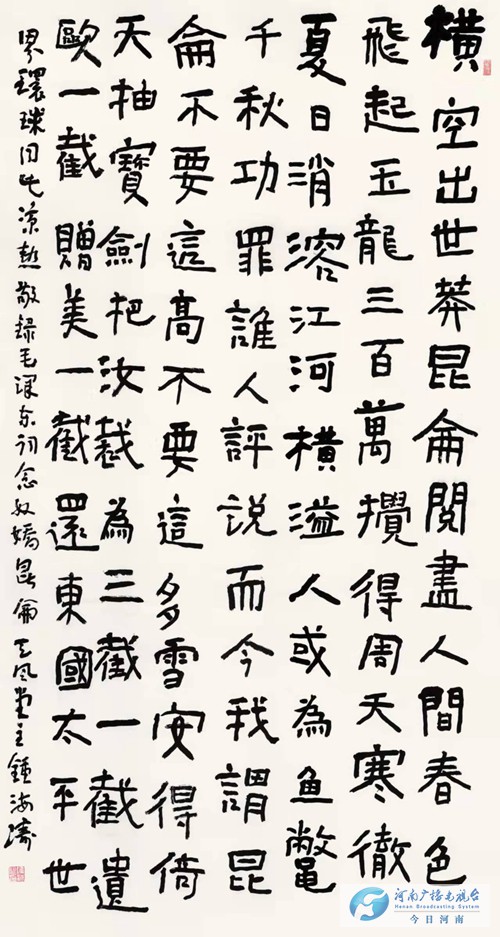 橫空出世莽昆侖閱盡人間春色
飛起玉龍三百萬攪得周天寒徹
夏日消溶江河橫溢人或為魚鼈
千秋功罪誰人評説而今我謂昆
侖不要這高不要這多雪安得倚
天抽寶劍把汝裁為三截一截遺
歐一截贈美一截還東國太平世
界環球同此涼熱敬録毛澤東詞念奴嬌昆侖 天風堂主鍾海濤
河南广播电视台
Henan Broadcasting System
今日河南